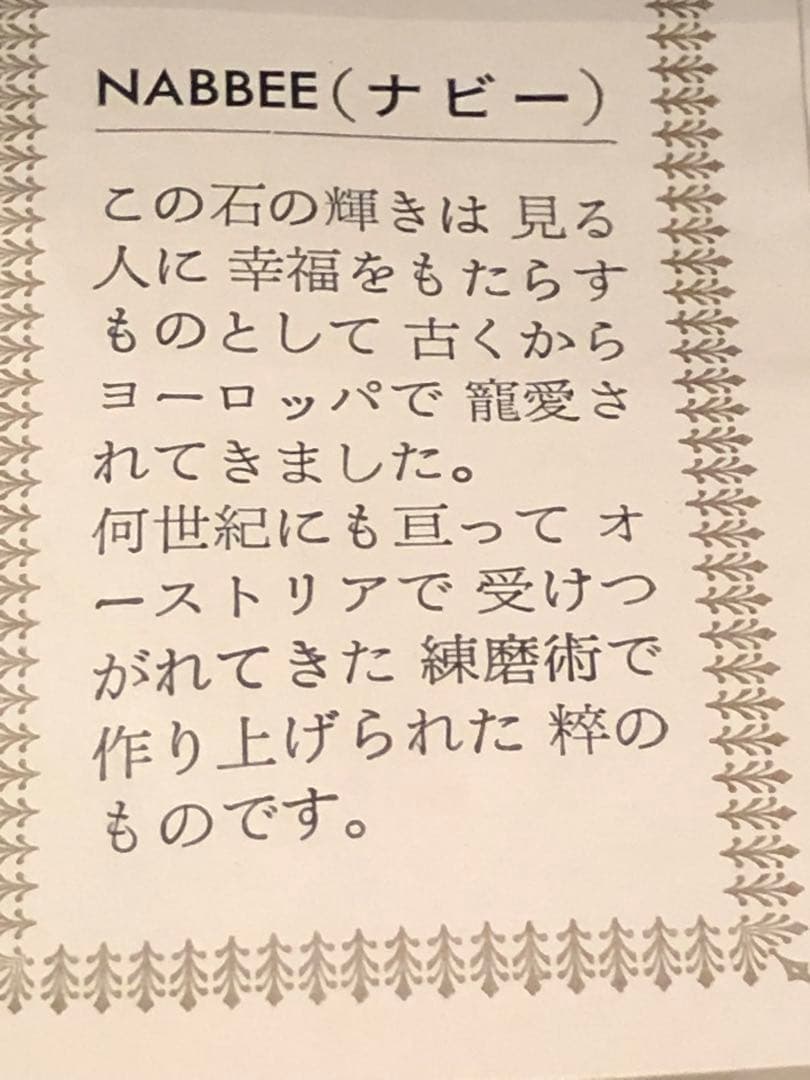 NABBEE(ナビー)
この石の輝きは 見る
人に 幸福をもたらす
ものとして 古くから
ヨーロッパで 寵愛さ
れてきました。
何世紀にも亘って オ
ーストリアで 受けつ
がれてきた 練磨術で
作り上げられた 粹の
ものです。